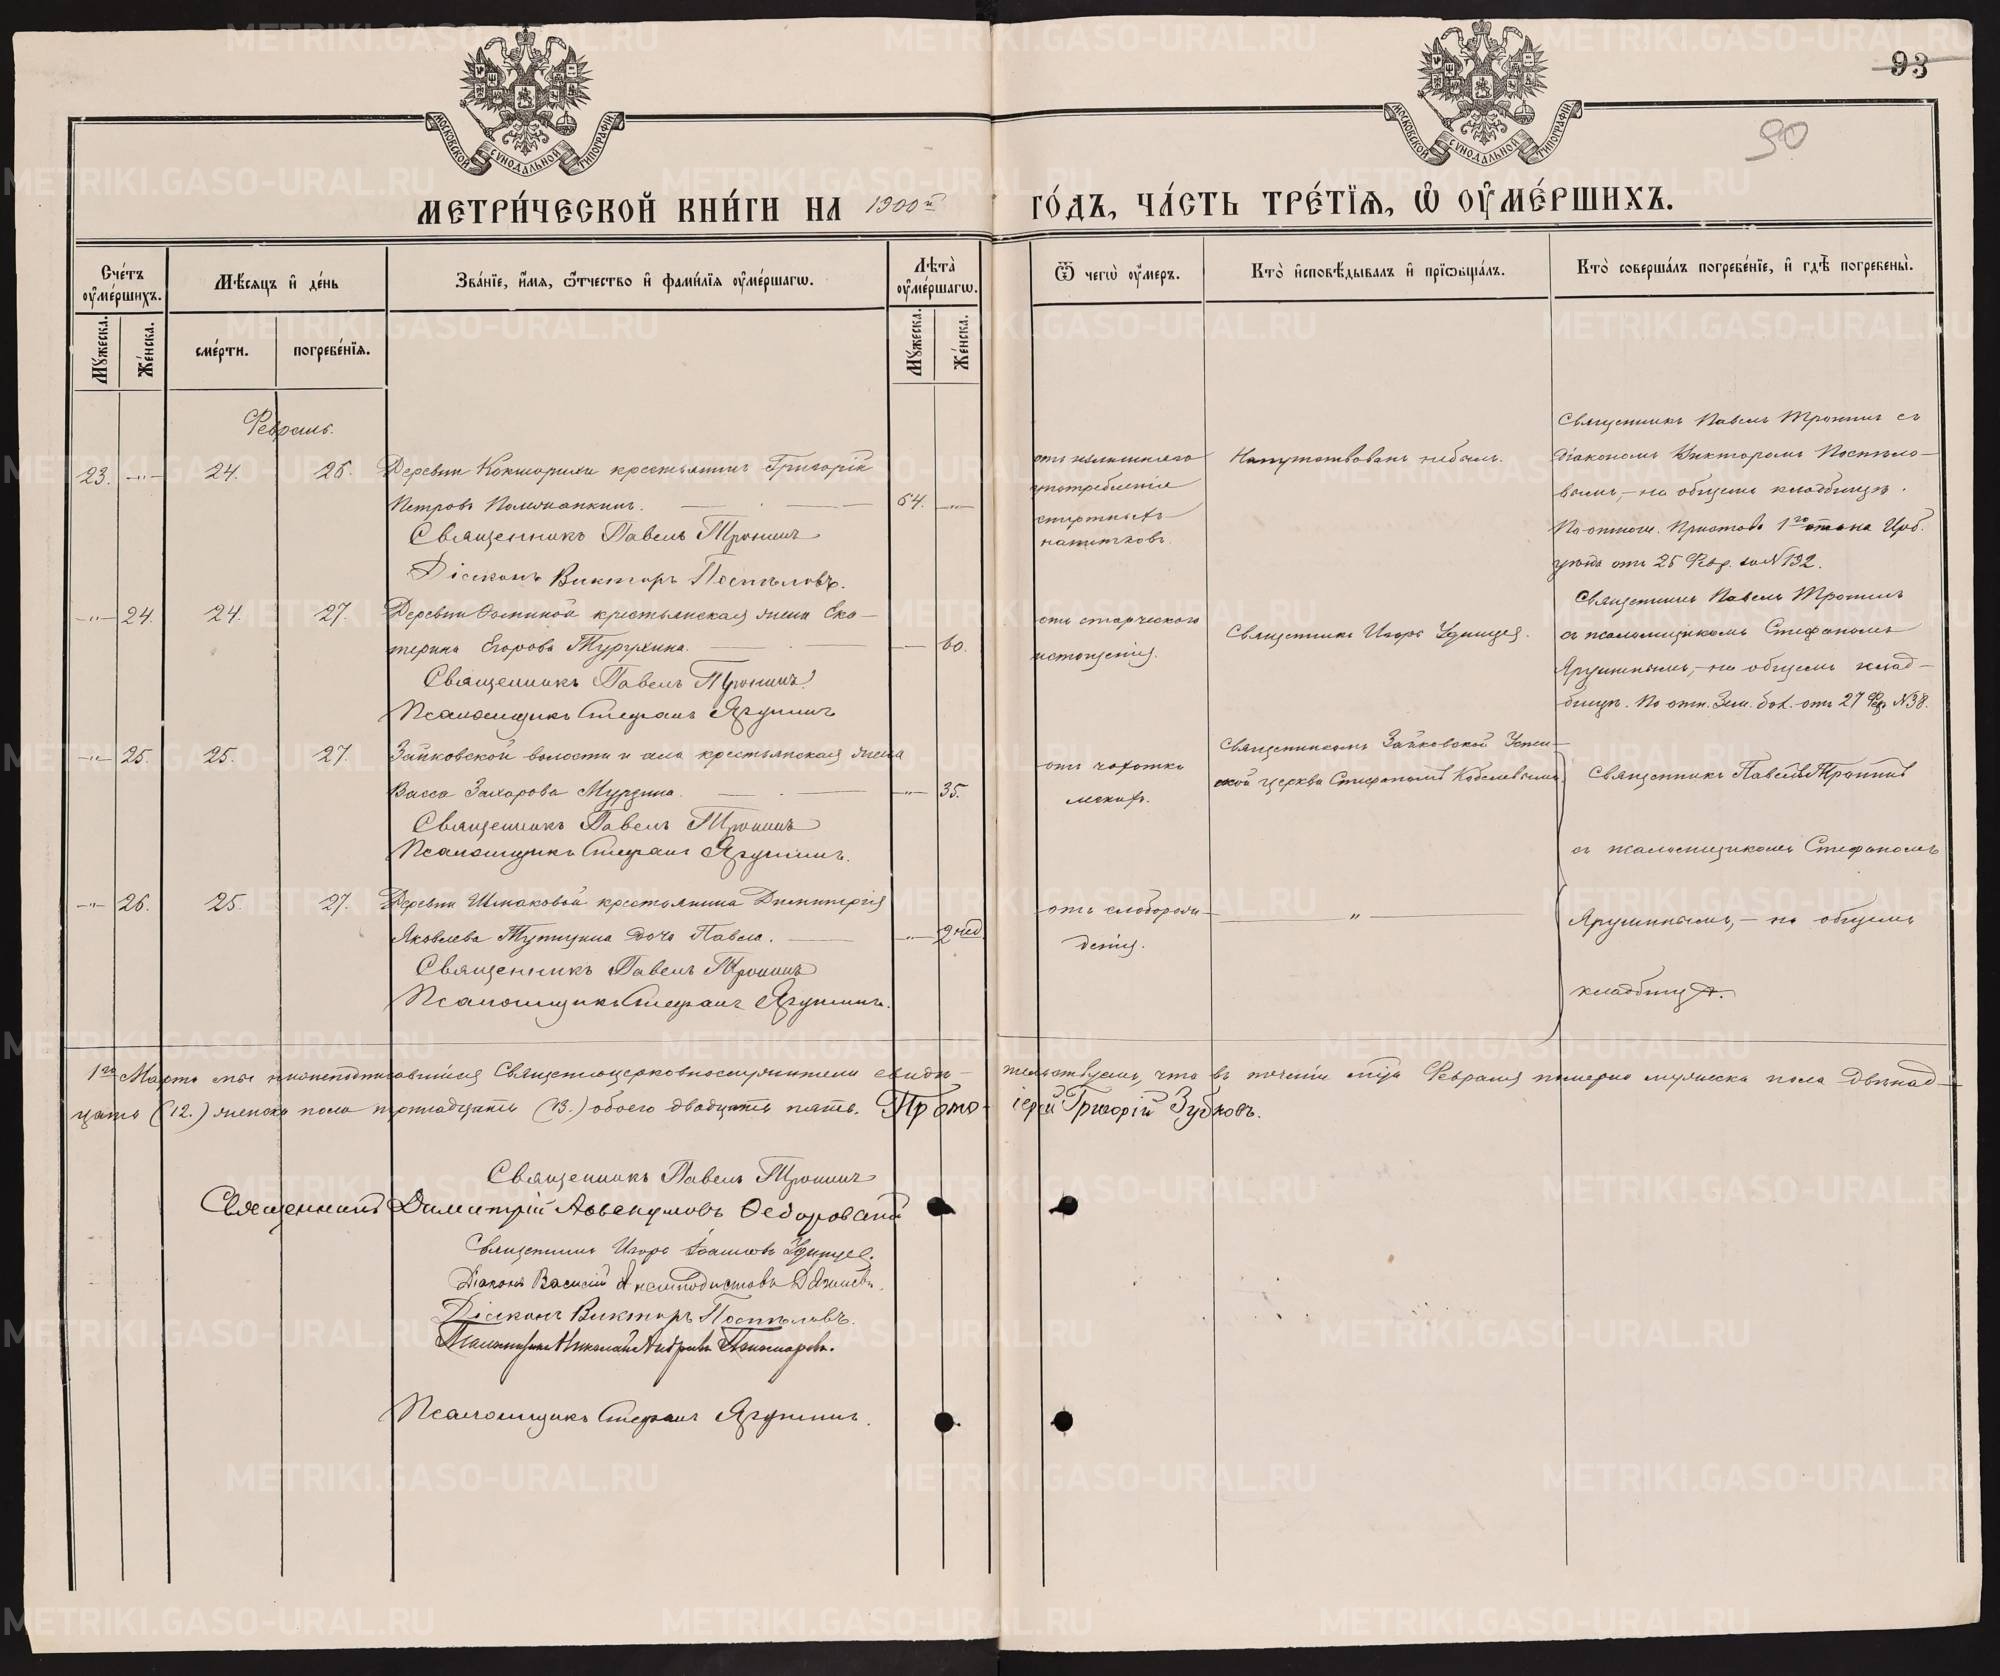 93
90
МОСКОВСКОЙ СѴНОДАЛЬНОЙ ТИПОГРАФІИ
МОСКОВСКОЙ СѴНОДАЛЬНОЙ ТИПОГРАФІИ
МЕТРИ́ЧЕСКОЙ КНИ́ГИ НА 1900й ГО́ДЪ, ЧА́СТЬ ТРЕ́ТІЯ, Ѡ ОУМЕ́РШИХЪ.
Сче́тъ оуме́ршихъ.
Мѣ́сяцъ и де́нь
Зва́ніе, и́мя, ѻ́тчество и фами́лія оуме́ршагѡ.
Лѣта̀ оуме́ршагѡ.
Ѿ чегѡ̀ оу́меръ.
Кто̀ исповѣ́дывалъ и пріѻбща́лъ.
Кто̀ соверша́лъ погребе́ніе, и гдѣ̀ погребены̀.
Мꙋжеска.
Же́нска.
сме́рти.
погребе́нія.
Мꙋжеска.
Же́нска.
Февраль.
23. -"- 24. 26. Деревни Кокшарихи крестьянинъ Григорій
Петровъ 64. -"-
Священникъ Павелъ Тронинъ
Діаконъ Викторъ Поспѣловъ.
отъ излишняго
употребленія
спиртныхъ
напитковъ.
Напутствованъ небылъ.
Священникъ Павелъ Тронинъ съ
діакономъ Викторомъ Поспѣло-
вымъ, - на общемъ кладбищѣ.
По отнош. Пристава 1го стана Ирб.
уѣзда отъ 25 Февр. за №132.
-"- 24. 24. 27. Деревни крестьянская жена Ека-
терина Егорова Мурзина. 60.
Священникъ Павелъ Тронинъ
Псаломщикъ Стефанъ Ярушинъ
отъ старческаго
истощенія.
Священникъ Игорь Удинцев.
Священникъ Павелъ Тронинъ
съ псаломщикомъ Стефаномъ
Ярушинымъ, - на общемъ клад-
бищѣ. По отн. Зем. отъ 27 Фев. №38.
-"- 25. 25. 27. Зайковской волости и села крестьянская жена
Васса Захарова Мурзина. -"- 35.
Священникъ Павелъ Тронинъ
Псаломщикъ Стефанъ Ярушинъ.
отъ чахотки
легкихъ.
Священникомъ Зайковской
церкви Стефаномъ
Священникъ Павелъ Тронинъ
съ псаломщикомъ Стефаномъ
Ярушинымъ, - на общемъ
кладбищѣ.
-"- 26. 25. 27. Деревни Шмаковой крестьянина Димитрія
Яковлева дочь Павла. -"- 2 нед.
Священникъ Павелъ Тронинъ
Псаломщикъ Стефанъ Ярушинъ.
отъ слаборож-
денія.
"
1го Марта мы нижеподписавшіеся Священноцерковнослужители свидѣ- тельствуемъ, что въ теченіи м-ца Февраля померло мужеска пола двѣнад-
цать (12.) женска пола тринадцать (13.) обоего двадцать пять. Прото- іерей Григорій Зубковъ.
Священникъ Павелъ Тронинъ
Священникъ Димитрій Аввакумовъ
Священникъ Игорь Іоанновъ Удинцев.
Діаконъ Василій
Діаконъ Викторъ Поспѣловъ.
Псаломщикъ Николай Андреевъ Пономаревъ.
Псаломщикъ Стефанъ Ярушинъ.